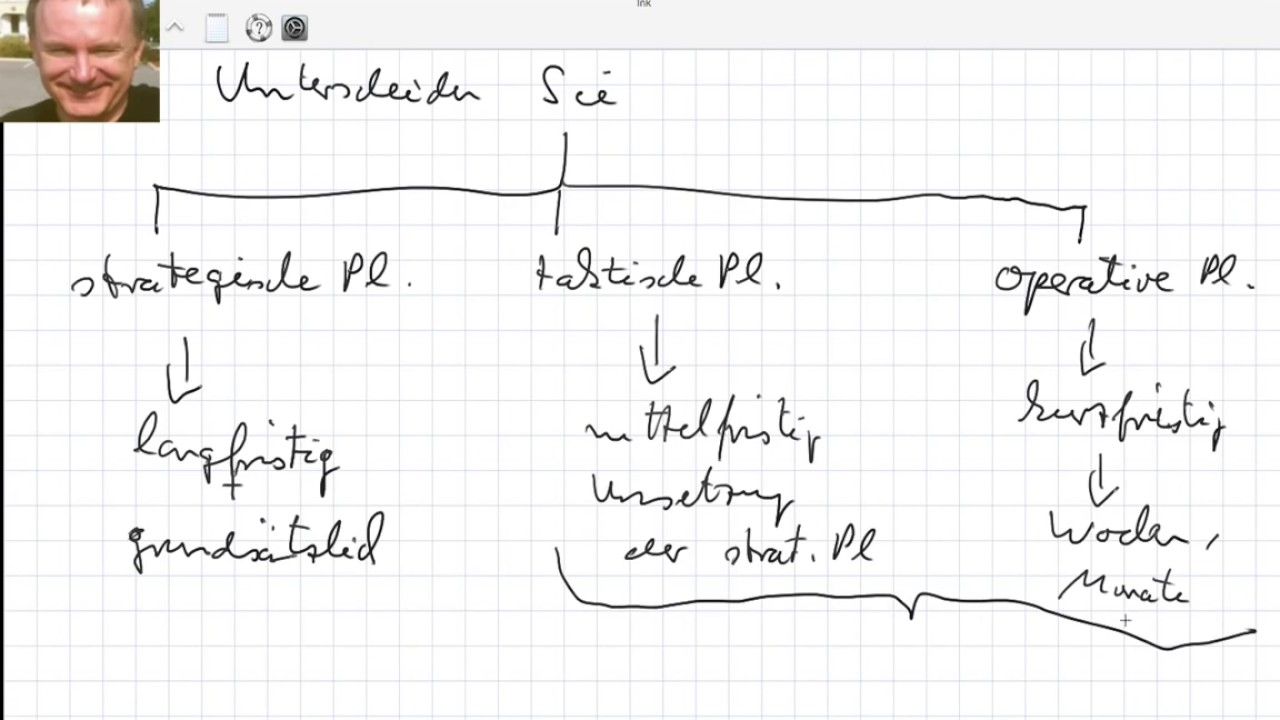 Ink
Unterscheiden Sie
strategische Pl. taktische Pl. operative Pl.
langfristig
+
grundsätzlich
mittelfristig
Umsetzung
der strat. Pl
kurzfristig
Wochen,
Monate